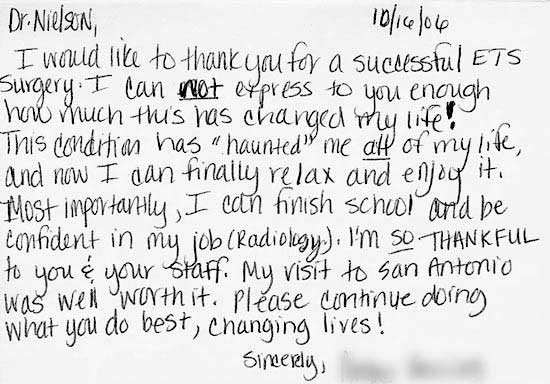 Dr. Nielson, 10/16/06
I would like to thank you for a successful ETS
surgery. I can not express to you enough
how much this has changed my life!
This condition has "haunted" me all of my life,
and now I can finally relax and enjoy it.
Most importantly, I can finish school and be
confident in my job (Radiology). I'm so THANKFUL
to you & your staff. My visit to San Antonio
was well worth it. Please continue doing
what you do best, changing lives!
Sincerely,